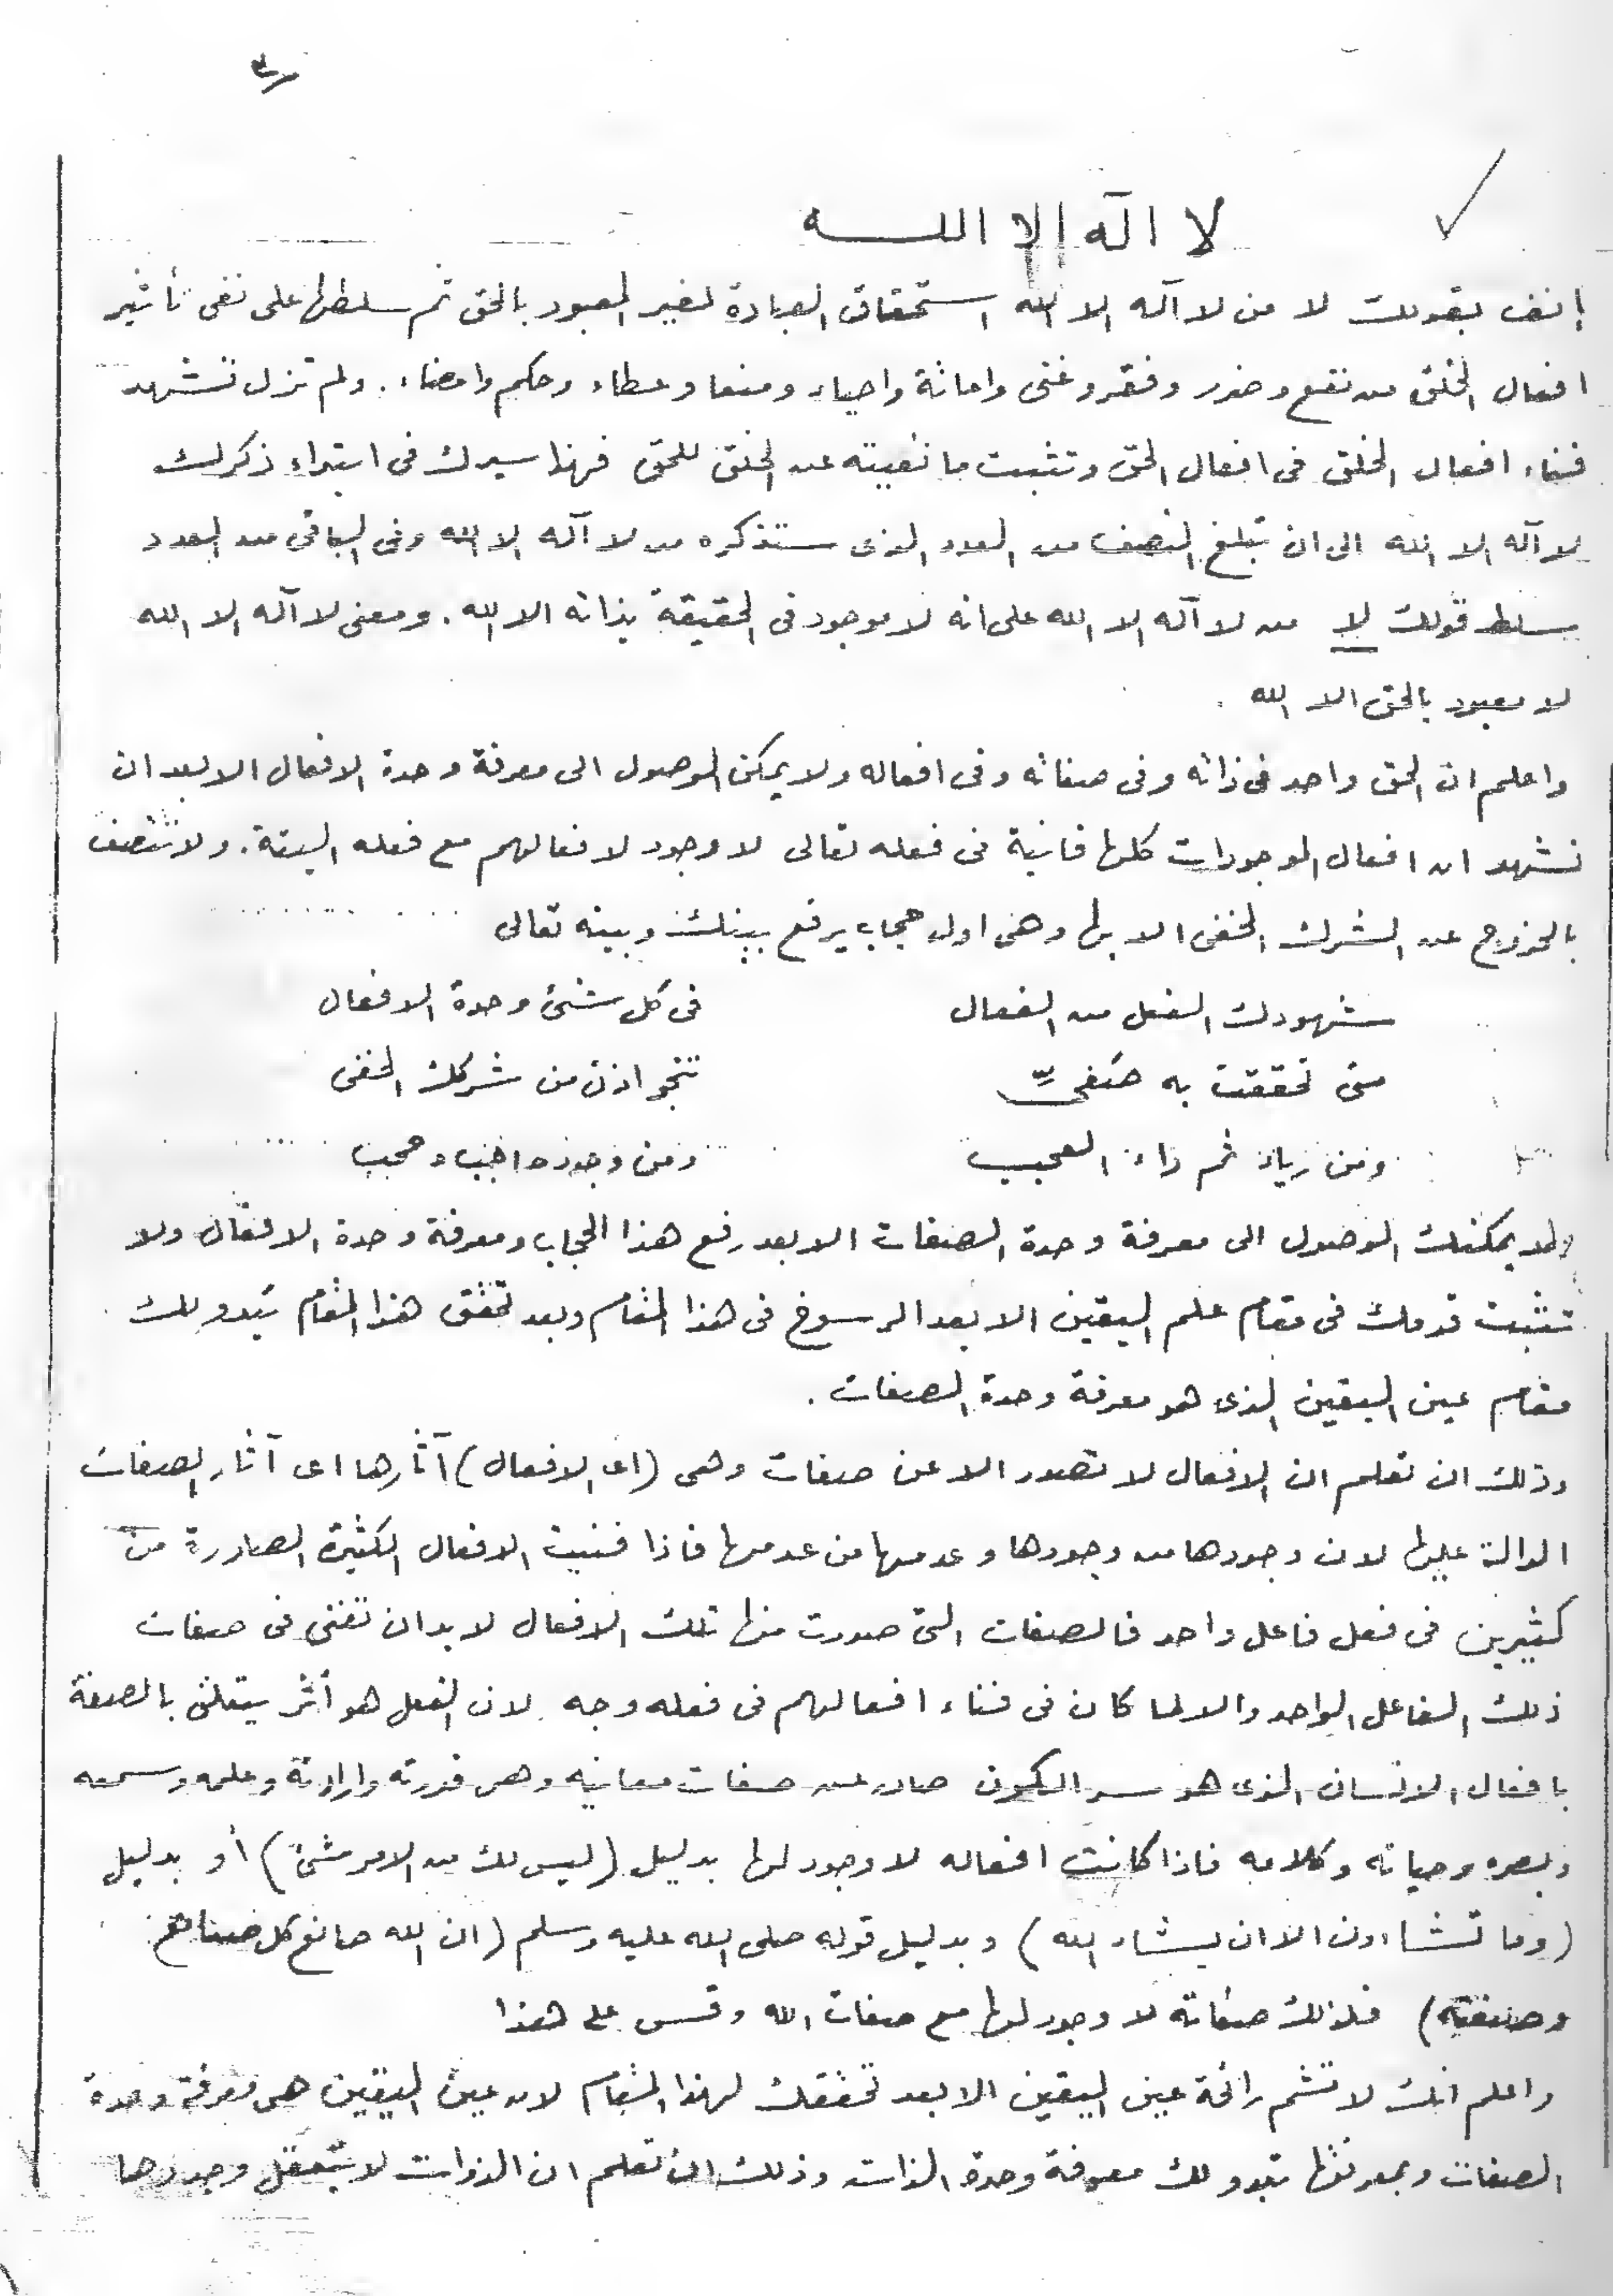 ٣
لا اله الا الله
إنف بقولك لا من لا آله الا الله استحقاق العبادة لغير المعبود بالحق ثم سلطها على نفى تأثير
افعال الخلق من نفع وضرر وفقر وغنى واماتة واحياء ومنعا وعطاء وحكم وامضاء. ولم تزل تشهد
فناء افعال الخلق فى افعال الحق وتثبت ما نفيته عن الخلق للحق فهذا سيرك فى ابتداء ذكرك
لا آله الا الله الى ان تبلغ النصف من العدد الذى ستذكره من لا آله الا الله وفى الباقى من العدد
سلط قولك لا من لا آله الا الله على انه لا موجود فى الحقيقة بذاته الا الله. ومعنى لا آله الا الله
لا معبود بالحق الا الله.
واعلم ان الحق واحد فى ذاته وفى صفاته وفى افعاله ولا يمكن الوصول الى معرفة وحدة الافعال الا بعد ان
تشهد ان افعال الموجودات كلها فانية فى فعله تعالى لا وجود لافعالهم مع فعله البتة. ولا تتصف
بالخروج عن الشرك الخفى الا بها وهى اول حجاب يرفع بينك وبينه تعالى
شهودك الفعل من الفعال فى كل شئ وحدة الافعال
متى تحققت به صفىّ تنجو اذن من شركك الخفى
ومن رياء ثم داء العجب ومن وجود
ولا يمكنك الوصول الى معرفة وحدة الصفات الا بعد رفع هذا الحجاب ومعرفة وحدة الافعال ولا
تثبت قدمك فى مقام علم اليقين الا بعد الرسوخ فى هذا المقام وبعد تحقق هذا المقام يبدو لك
مقام عين اليقين الذى هو معرفة وحدة الصفات.
وذلك ان تعلم ان الافعال لا تصدر الا عن صفات وهى (اى الافعال) آثارها اى آثار الصفات
الدالة عليها لان وجودها من وجودها وعدمها من عدمها فاذا فنيت الافعال الكثيرة الصادرة من
كثيرين فى فعل فاعل واحد فالصفات التى صدرت منها تلك الافعال لا بد ان تفنى فى صفات
ذلك الفاعل الواحد والا لما كان فى فناء افعالهم فى فعله وجه لان الفعل هو أثر يتعلق بالصفة
بافعال الانسان الذى هو سر الكون صادر عن صفات معانيه وهى قدرته وارادته وعلمه وسمعه
وبصره وحياته وكلامه فاذا كانت افعاله لا وجود لها بدليل (ليس لك من الامر شئ) أو بدليل
(وما تشاءون الا ان يشاء الله) وبدليل قوله صلى الله عليه وسلم (ان الله صانع كل صانع
وصنعته) فلذلك صفاته لا وجود لها مع صفات الله وقس على هذا
واعلم انك لا تشم رائحة عين اليقين الا بعد تحققك لهذا المقام لان عين اليقين هى معرفة وحدة
الصفات وبمعرفتها تبدو لك معرفة وحدة الذات وذلك ان تعلم ان الذوات لا يتعقل وجودها